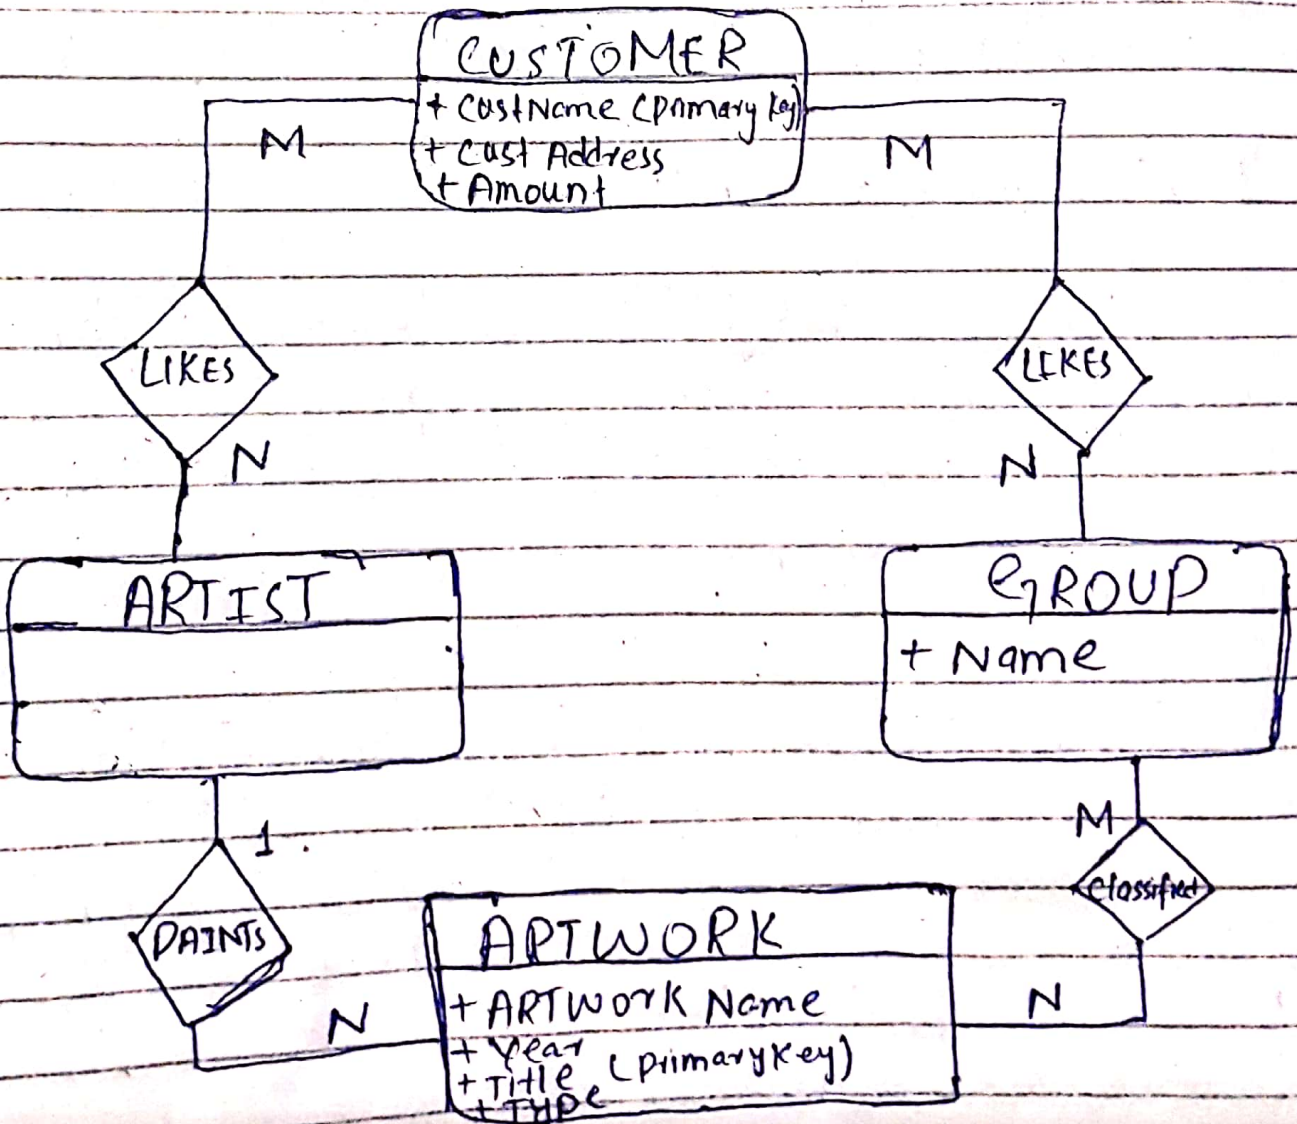 CUSTOMER
+ CustName (primary key)
+ Cust Address
+ Amount
M
M
LIKES
LIKES
N
N
ARTIST
GROUP
+ Name
1
M
PAINTS
Classified
ARTWORK
+ ARTWork Name
N
N
+ Year
+ Title (primary key)
+ Type